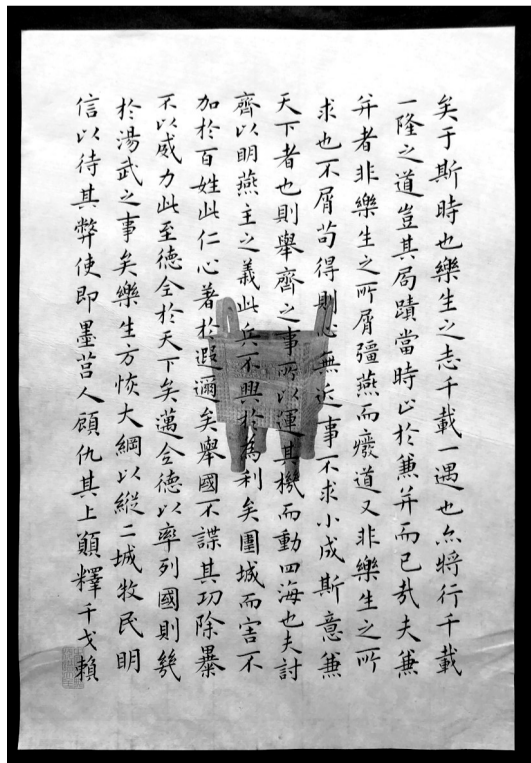 矣于斯時也樂生之志千載一遇也亦將行千載
一隆之道豈其局蹟當時止於兼并而已哉夫兼
并者非樂生之所屑彊燕而癈道又非樂生之所
求也不屑苟得則心無近事不求小成斯意兼
天下者也則舉齊之事所以運其機而動四海也夫討
齊以明燕主之義此兵不興於為利矣圍城而害不
加於百姓此仁心著於遐邇矣舉國不謀其功除暴
不以威力此至德全於天下矣邁全德以率列國則幾
於湯武之事矣樂生方恢大綱以縱二城牧民明
信以待其弊使即墨莒人顧仇其上願釋干戈賴